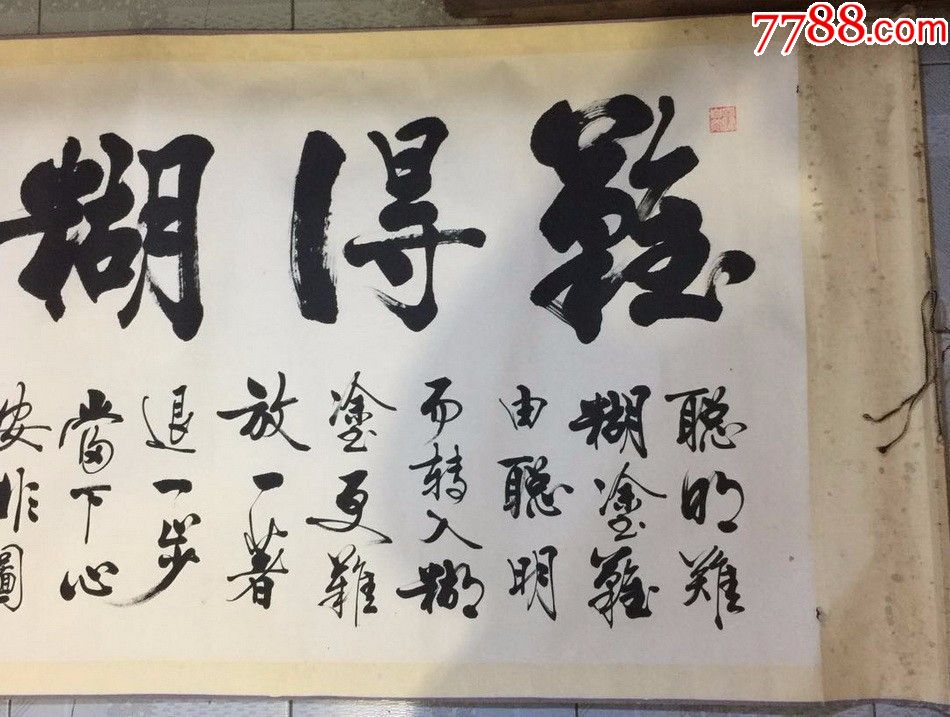 7788.com
難得糊
聰明難
糊塗難
由聰明
而轉入糊
塗更難
放一著
退一步
當下心
安非圖